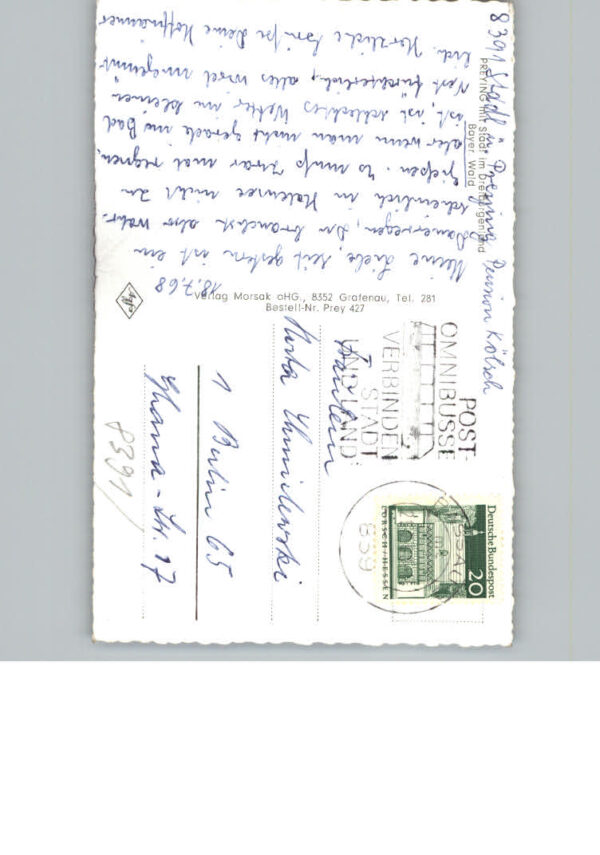 8391 Stadl ü. Preying, Pension Kölsch
PREYING mit Stadl im Dreiburgenland
Bayer. Wald
18.7.68
Meine Liebe, seit gestern ist ein
Dauerregen, Du brauchst also wahr-
scheinlich in Halensee nicht zu
gießen. Es muß zwar mal regnen,
aber wenn man nicht gerade im Bad
ist, ist schlechtes Wetter im kleinen
Nest fürchterlich, alles wird ungemüt-
lich. Herzliche Grüße Deine
Verlag Morsak oHG., 8352 Grafenau, Tel. 281
Bestell-Nr. Prey 427
Agfa
POST-
OMNIBUSSE
VERBINDEN
STADT
UND LAND
PASSAU
839
Deutsche Bundespost
20
LORSCH/HESSEN
Fräulein
Herta Chmilewski
1 Berlin 65
Ghana-Str. 17
8391